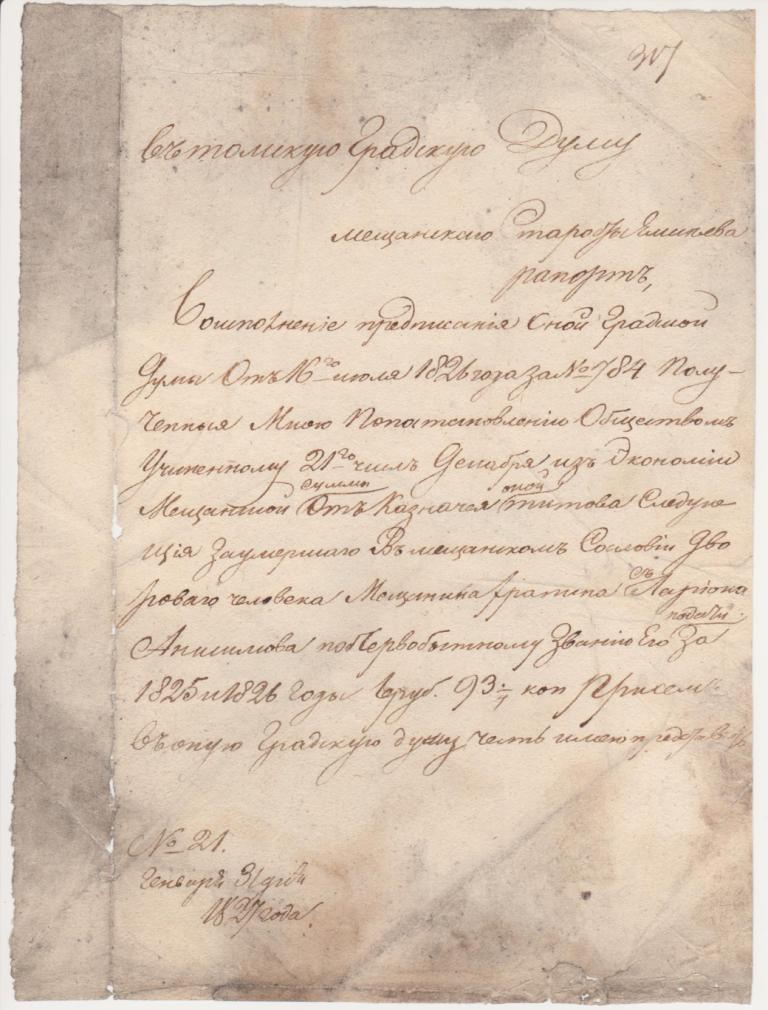 Въ томскую Градскую Думу
мещанскаго Старосты
рапортъ,
Воисполнение предписания Оной Градской
Думы Отъ 16го июля 1826 года за № 784 Полу-
ченныя Мною Попостановлению Обществомъ
Учиненному 21го числъ Декабря изъ Экономии
суммы оной
Мещанской Отъ Казначея Титова Следую
щія Заумершаго Вмещанскомъ Сословіи Дво
роваго человека Мещанина
съ Ларіона
подати
Анисимова поПервобытному Званию Его За
1825 и 1826 Годы руб. 93 коп Присемъ
Въоную Градскую думу честь имею представить
№ 21.
Генваря 31 дня
1827 года.